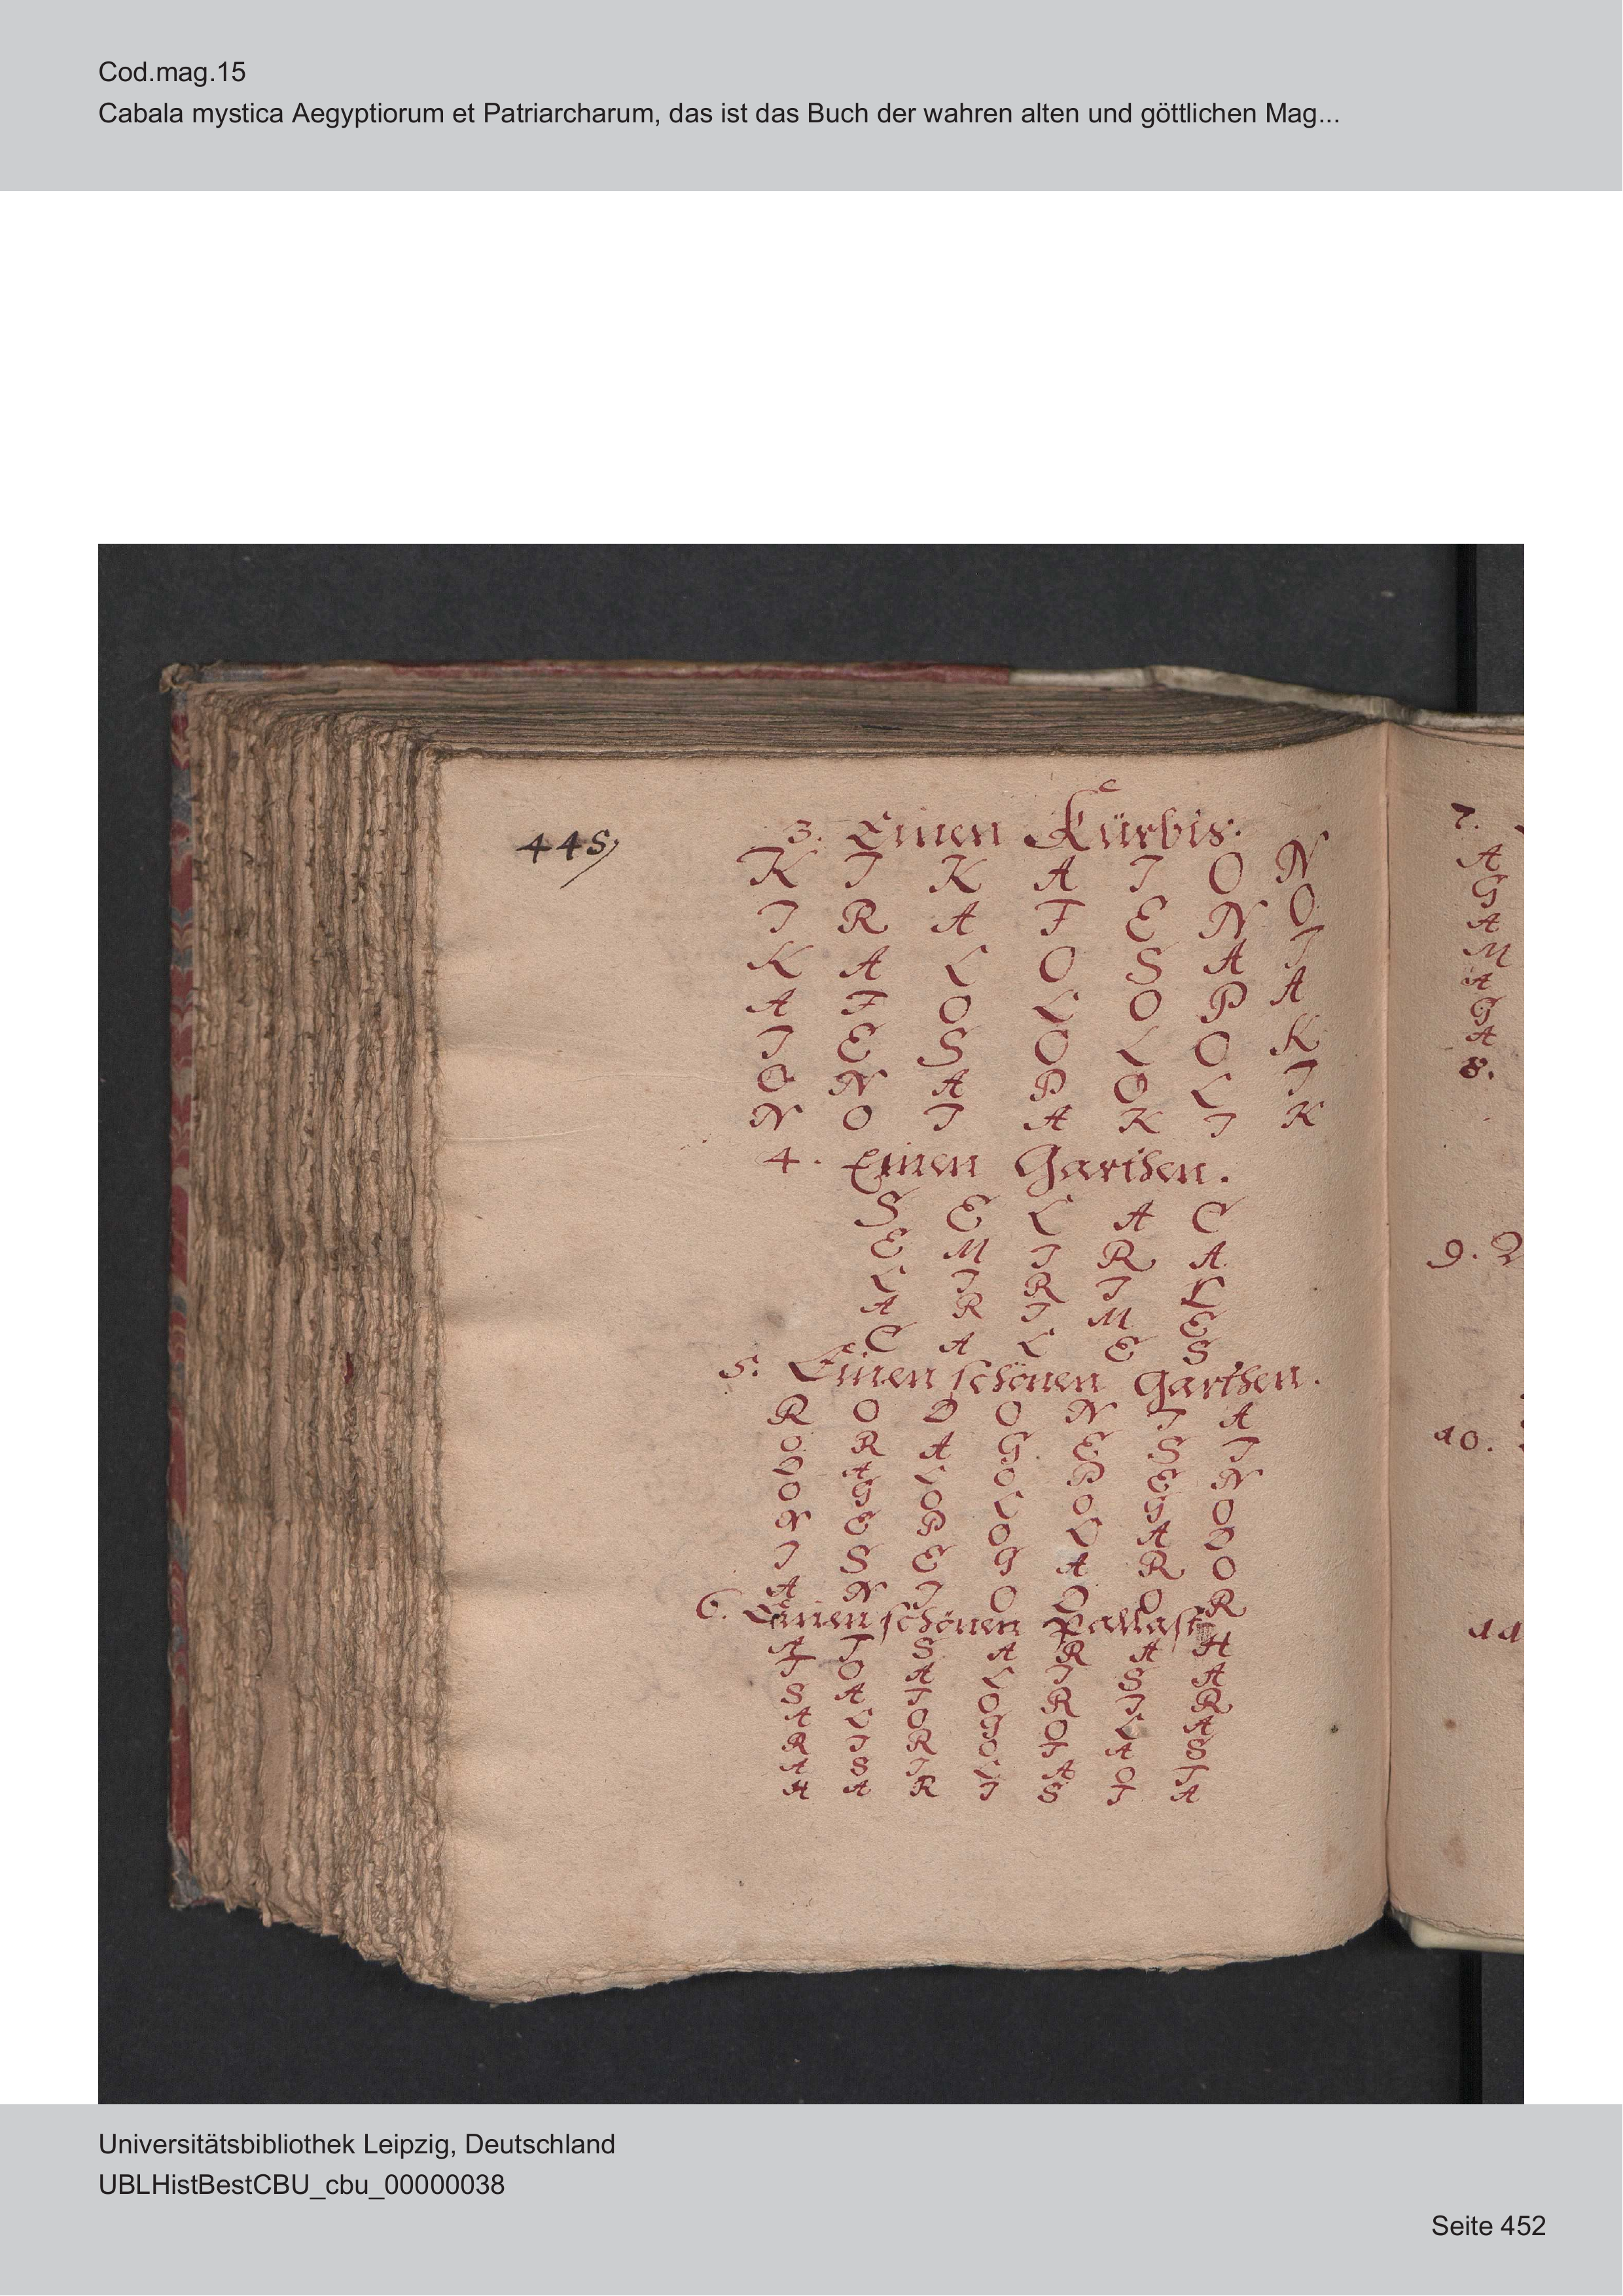 Cod.mag.15
Cabala mystica Aegyptiorum et Patriarcharum, das ist das Buch der wahren alten und göttlichen Mag...
445
3. Einen Kürbis.
K I K A I O N
I R A F E N O
K A L O S A I
A F O L O P A
I E S O L O K
O N A P O L I
N O I A K I K
4. Einen Garthen.
S E L A C
E M I R A
L I R I L
A R I M E
C A L E S
5. Einen schönen Garthen.
R O D O N I A
O R A G E S I
D A L O P E N
O G O L O G O
N E P O L A D
I S E G A R O
A N I O D O R
6. Einen schönen Pallast
A I S A R A H
I O A L I S A
S A I O R I R
A L O G O L A
R I R O I A S
A S I L A O I
H A R I S I A
7.
A
G
A
M
A
G
A
8.
9.
10.
11
Universitätsbibliothek Leipzig, Deutschland
UBLHistBestCBU_cbu_00000038
Seite 452